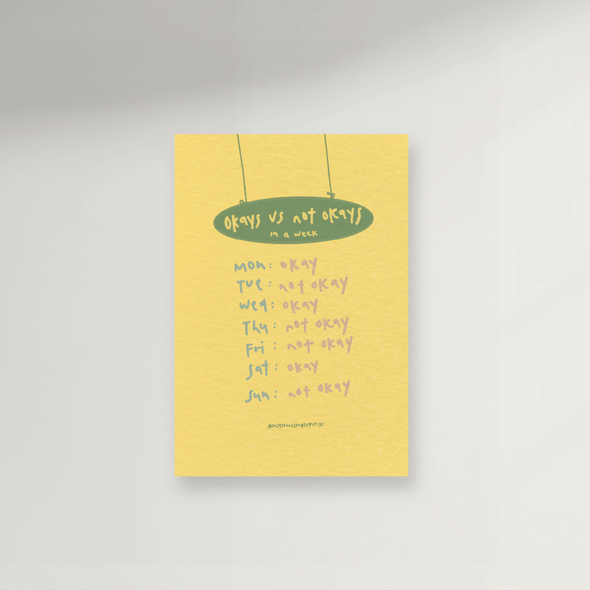 okays vs not okays
in a week
mon: okay
Tue: not okay
wed: okay
Thu: not okay
Fri: not okay
Sat: okay
Sun: not okay